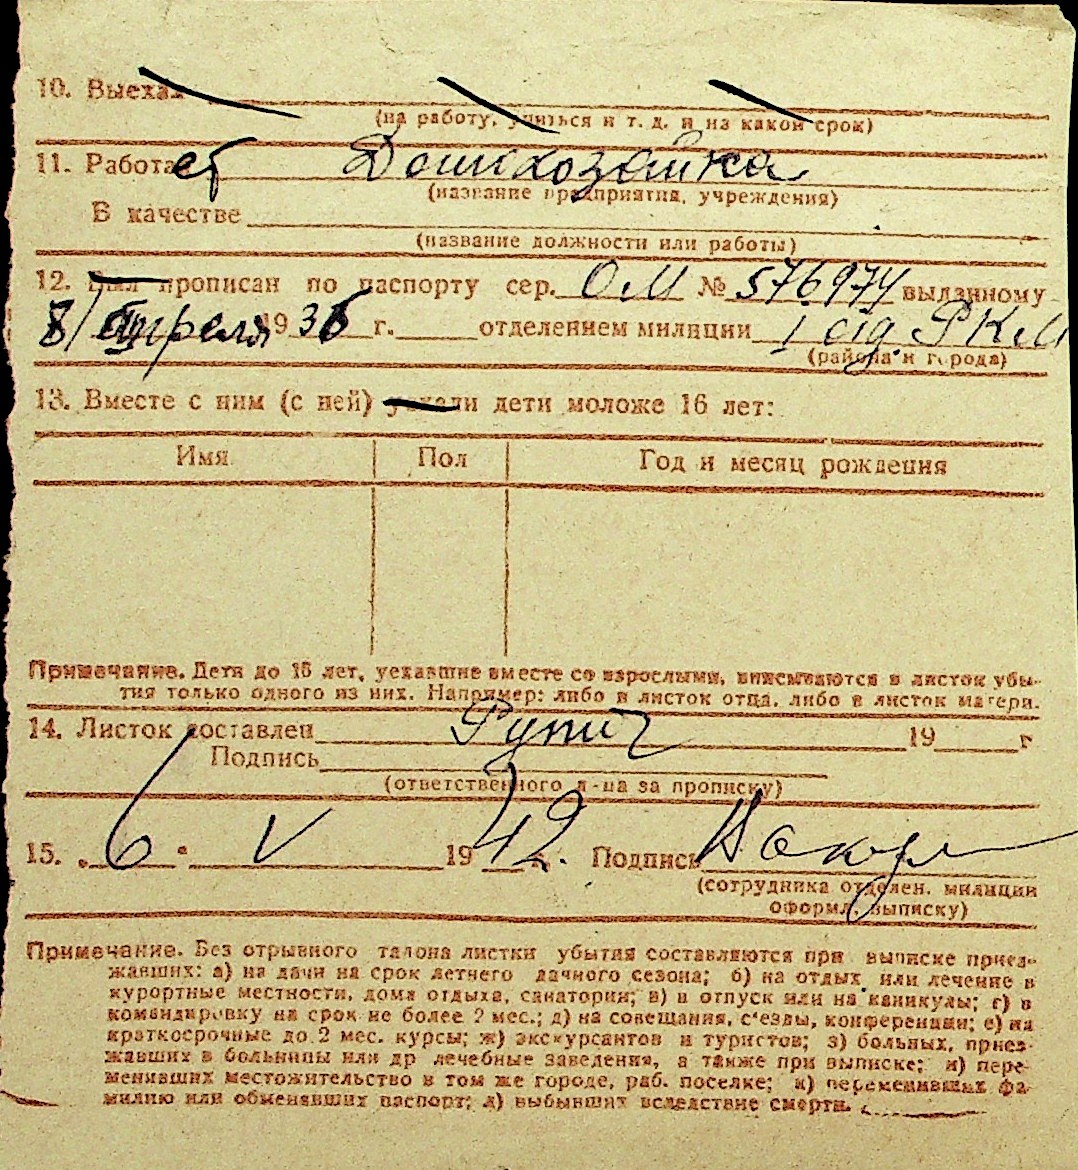 10. Выехал
(на работу, учиться и т. д. и на какой срок)
11. Работает Домохозяйка
(название предприятия, учреждения)
В качестве
(название должности или работы)
12. Был прописан по паспорту сер. ОМ № 576974 выданному
8/ апреля 1936 г. отделением милиции 1 отд. РКМ
(района и города)
13. Вместе с ним (с ней) уехали дети моложе 16 лет:
Имя Пол Год и месяц рождения
Примечание. Дети до 16 лет, уехавшие вместе со взрослыми, вписываются в листок убы-
тия только одного из них. Например: либо в листок отца, либо в листок матери.
14. Листок составлен 19 г
Подпись
(ответственного л-ца за прописку)
15. „6" V 1942 г. Подпись
(сотрудника отделен. милиции
оформл. выписку)
Примечание. Без отрывного талона листки убытия составляются при выписке приез-
жавших: а) на дачи на срок летнего дачного сезона; б) на отдых или лечение в
курортные местности, дома отдыха, санатории; в) в отпуск или на каникулы; г) в
командировку на срок не более 2 мес.; д) на совещания, с'езды, конференции; е) на
краткосрочные до 2 мес. курсы; ж) экскурсантов и туристов; з) больных, приез-
жавших в больницы или др лечебные заведения, а также при выписке; и) пере-
менивших местожительство в том же городе, раб. поселке; к) переменивших фа-
милию или обменявших паспорт; л) выбывших вследствие смерти.